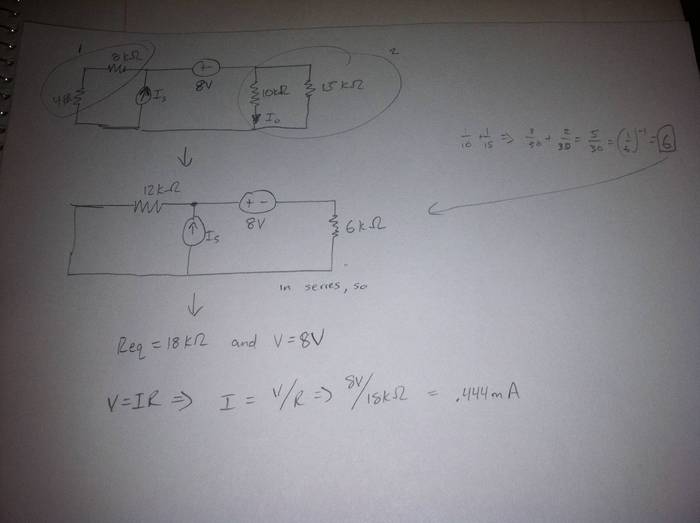 1
2
8kΩ
+ -
8V
Is
10kΩ
15kΩ
Io
1/10 + 1/15 ⇒ 3/30 + 2/30 = 5/30 = (1/6)⁻¹ = 6
12kΩ
+ -
8V
Is
6kΩ
in series, so
Req = 18kΩ and V = 8V
V=IR ⇒ I = V/R ⇒ 8V/18kΩ = .444mA